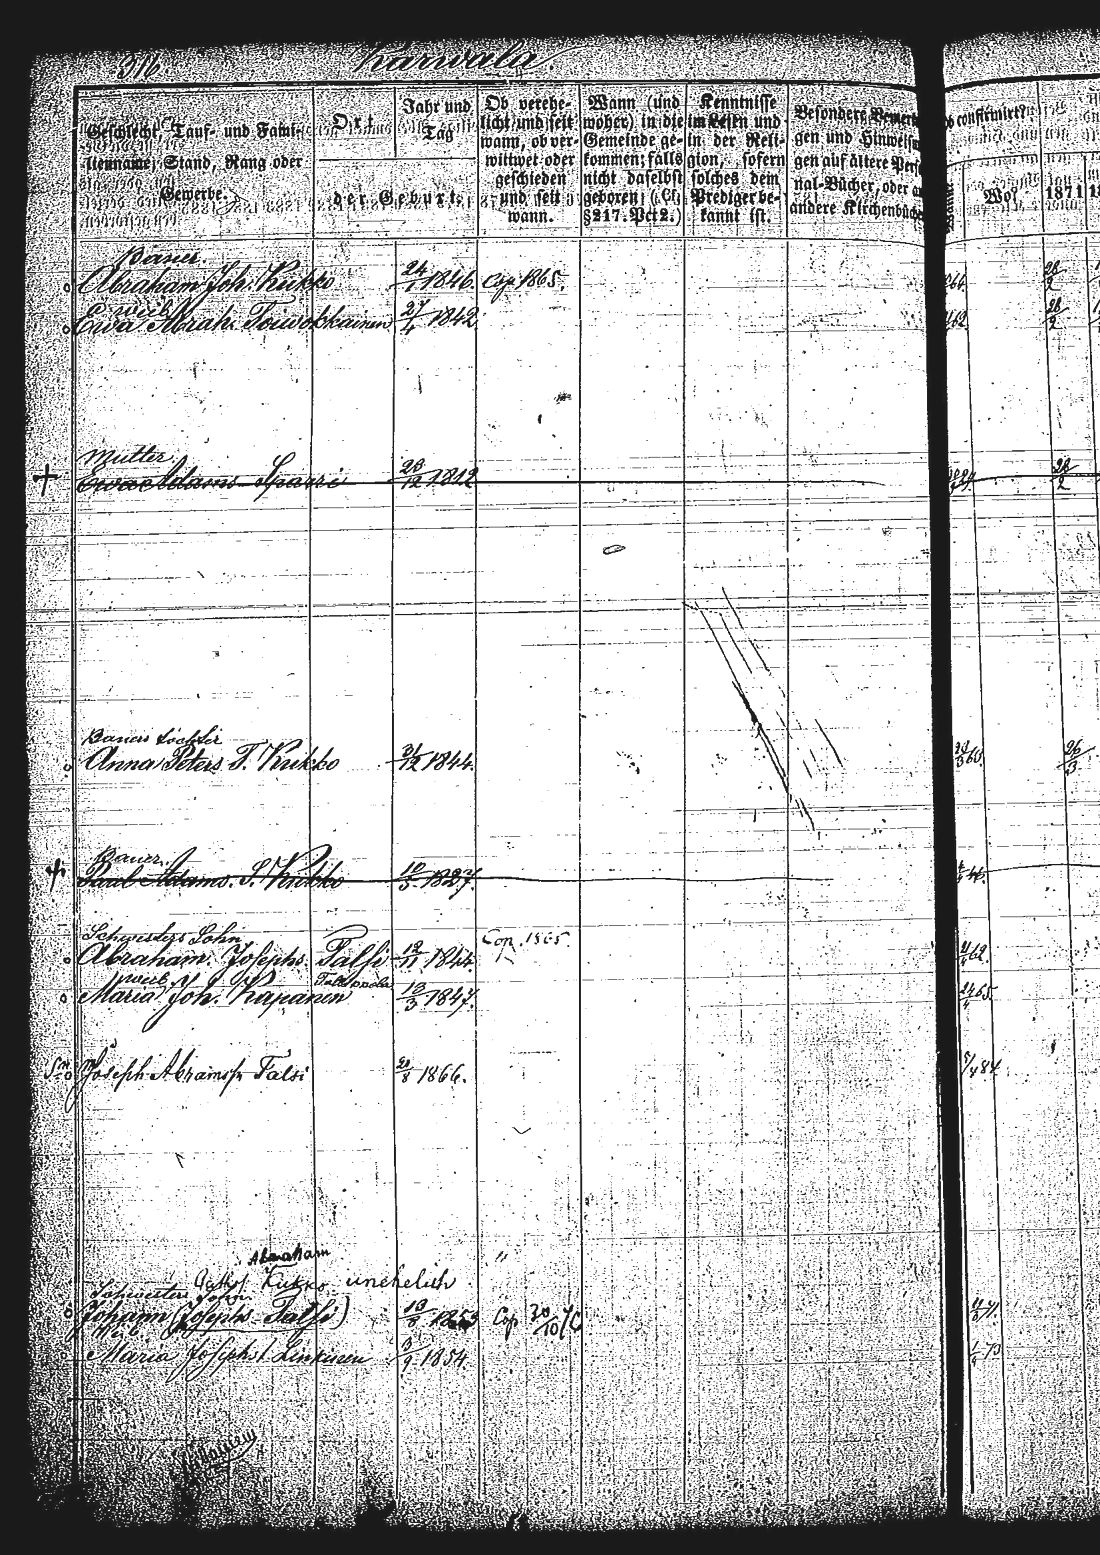 316 Karwala.
Geschlecht, Tauf- und Fami-
lienname, Stand, Rang oder
Gewerbe.
Ort
Jahr und
Tag
der Geburt.
Ob verehe-
licht und seit
wann, ob ver-
wittwet oder
geschieden
und seit
wann.
Wann (und
woher) in die
Gemeinde ge-
kommen; falls
nicht daselbst
geboren (Cf.
§ 217. Pct 2.)
Kenntnisse
im Lesen und
in der Reli-
gion, sofern
solches dem
Prediger be-
kannt ist.
Besondere Bemerk
gen und Hinweisun
gen auf ältere Perso
nal-Bücher, oder a
andere Kirchenbüche
o confirmirt?
Wo?
1871
Bauer
Abraham Joh. Kukko 24/1 1846. Cop 1865. 28/2
Weib
Ewa Abrah. Toiwokkainen 27/4 1842 62 28/2
Mutter
† Ewa Adams Sparri 28/12 1812 28/2
Bauers Tochter
Anna Peters T. Kukko 31/12 1844. 60. 26/3
Bauer
† Paul Adams. S. Kukko 10/5 1827
Schwesters Sohn
Abraham. Josephs. Talsi 12/11 1844. Cop. 1865. 62.
Weib
Maria Joh. Kapanen 13/3 1847. 65
Joseph Abramss Talsi 20/8 1866. 84
Abraham "
Kukko unehelich
Schwesters Sohn
Johann (Josephs Talsi) 1853 Cop 30/10 7
Weib
Maria Josephs t. Linkinen 3/9 1854. 73